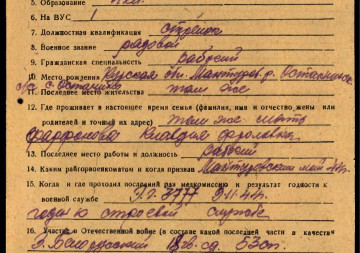 5. Образование 4 кл.
6. На ВУС 1
7. Должностная квалификация стрелок
8. Военное звание рядовой
9. Гражданская специальность рабочий
10. Место рождения Курская обл. Мантуров. р.
с. Останино
11. Последнее место жительства там же
12. Где проживает в настоящее время семья (фамилия, имя и отчество жены или
родителей и точный их адрес) там же мать
Клавдия Фроловна
13. Последнее место работы и должность рабочий
14. Каким райгорвоенкоматом и когда призван Мантуровским май 44г.
15. Когда и где проходил последний раз медкомиссию и результат годности к
военной службе 9.11.44г.
годен к строевой службе
16. Участие в Отечественной войне (в составе какой последней части в качестве
сд. 53 сп.